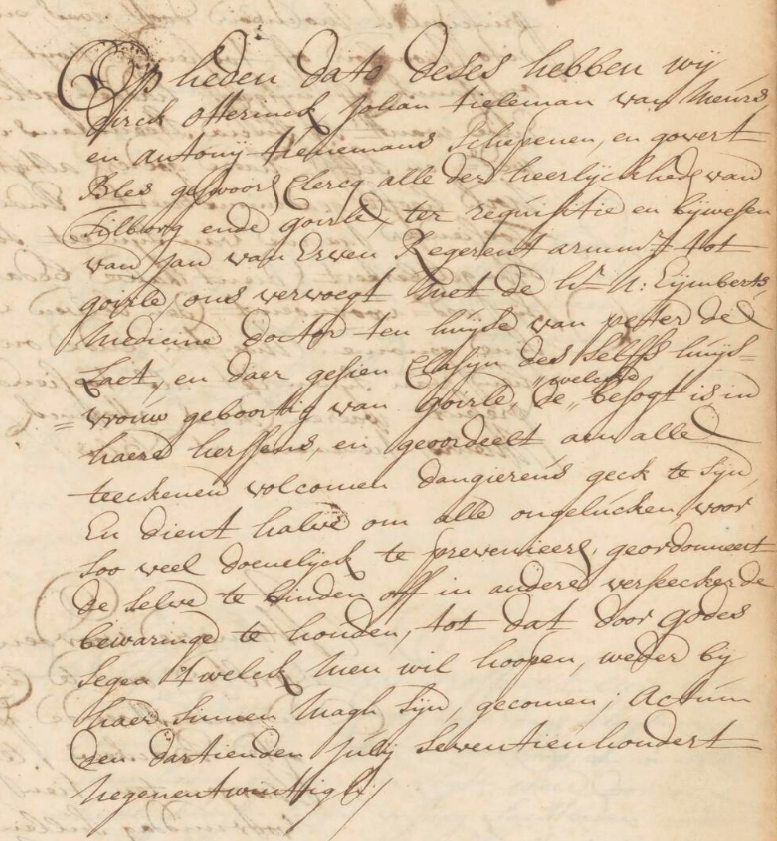 Op heden dato deses hebben wij
dirck otterinck, Johan tieleman van Meurs
en antonij tieniemans Schepenen, en govert
Bles geswoor Clercq alle der heerlijckhed van
Tilborg ende goirle, ter requisitie en bijwesen
van Jan van Erven Regerent armm.r tot
goirle, ons vervoegt met de hr. A: Eijmberts
Medicine doctor ten huijse van peter de
Laet, en daer gesien Clasijn des selfs huijs=
=vrouw geboortig van goirle, de "welcke" besogt is in
haere herssens, en geoordeelt aen alle
teeckenen volcomen dangiereus geck te sijn
En dient halve om alle ongelucken, voor
soo veel doenelijck te prevenieer, geordonneert
de selve te binden off in andere verseeckerde
bewaringe te houden, tot dat door godes
segen 't welck men wil hoopen, weder bij
haer sinnen magh sijn, gecomen; Actum
den dartienden Julij seventienhondert
negenentwintigh /